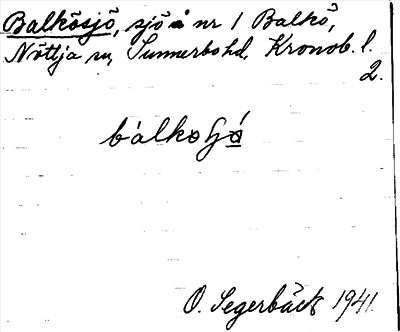 Balkösjö, sjö å nr 1 Balkö,
Nöttja sn, Sunnerbo hd, Kronob. l.
2.
O. Segerbäck 1941.